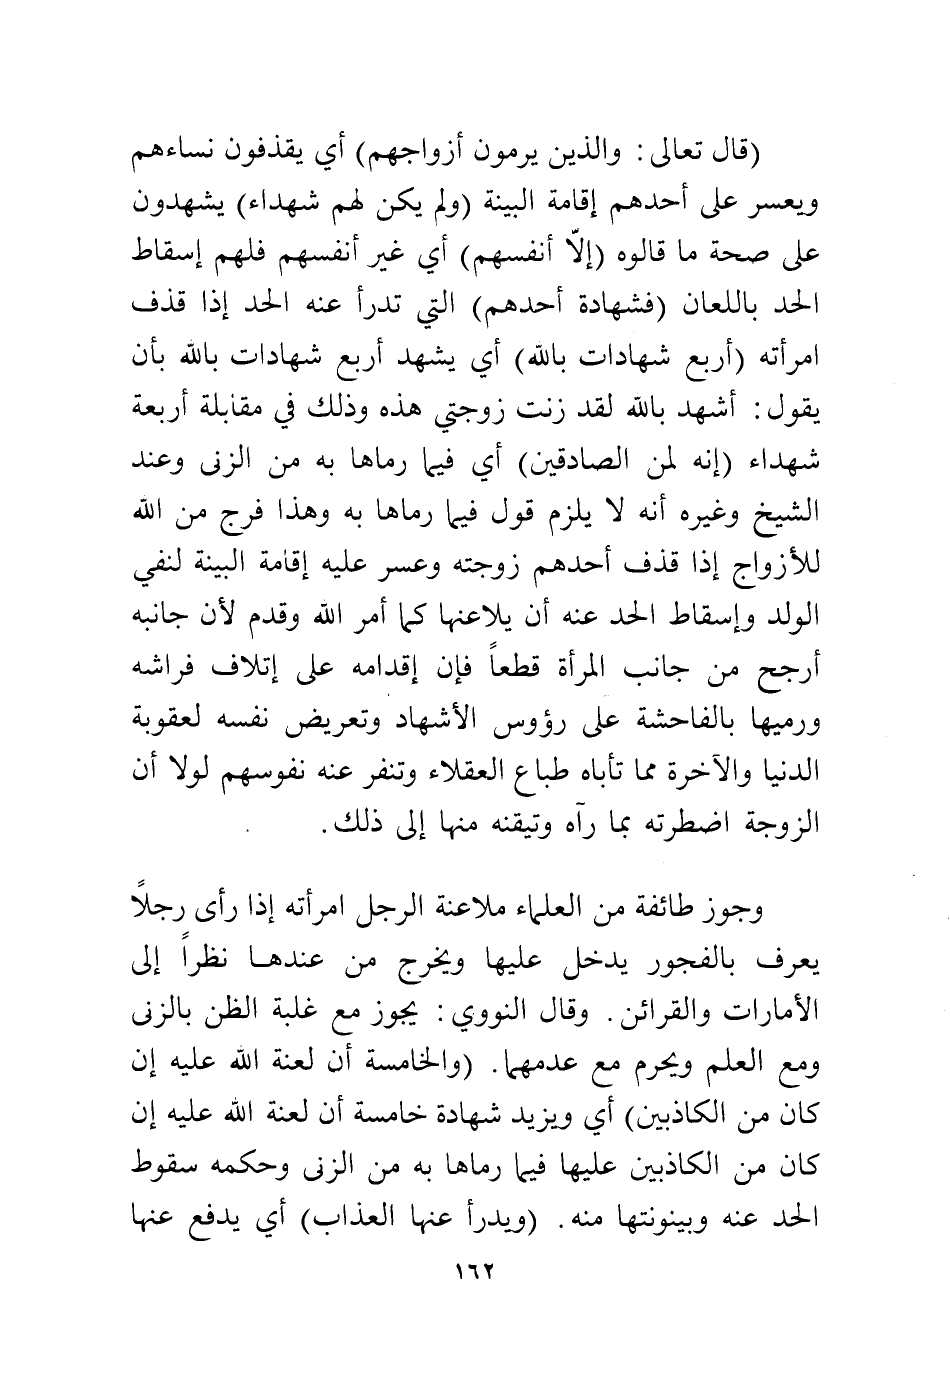 (قال تعالى: والذين يرمون أزواجهم) أي يقذفون نساءهم
ويعسر على أحدهم إقامة البينة (ولم يكن لهم شهداء) يشهدون
على صحة ما قالوه (إلاّ أنفسهم) أي غير أنفسهم فلهم إسقاط
الحد باللعان (فشهادة أحدهم) التي تدرأ عنه الحد إذا قذف
امرأته (أربع شهادات بالله) أي يشهد أربع شهادات بالله بأن
يقول: أشهد بالله لقد زنت زوجتي هذه وذلك في مقابلة أربعة
شهداء (إنه لمن الصادقين) أي فيما رماها به من الزنى وعند
الشيخ وغيره أنه لا يلزم قول فيما رماها به وهذا فرج من الله
للأزواج إذا قذف أحدهم زوجته وعسر عليه إقامة البينة لنفي
الولد وإسقاط الحد عنه أن يلاعنها كما أمر الله وقدم لأن جانبه
أرجح من جانب المرأة قطعاً فإن إقدامه على إتلاف فراشه
ورميها بالفاحشة على رؤوس الأشهاد وتعريض نفسه لعقوبة
الدنيا والآخرة مما تأباه طباع العقلاء وتنفر عنه نفوسهم لولا أن
الزوجة اضطرته بما رآه وتيقنه منها إلى ذلك.
وجوز طائفة من العلماء ملاعنة الرجل امرأته إذا رأى رجلاً
يعرف بالفجور يدخل عليها ويخرج من عندها نظراً إلى
الأمارات والقرائن. وقال النووي: يجوز مع غلبة الظن بالزنى
ومع العلم ويحرم مع عدمهما. (والخامسة أن لعنة الله عليه إن
كان من الكاذبين) أي ويزيد شهادة خامسة أن لعنة الله عليه إن
كان من الكاذبين عليها فيما رماها به من الزنى وحكمه سقوط
الحد عنه وبينونتها منه. (ويدرأ عنها العذاب) أي يدفع عنها
١٦٢